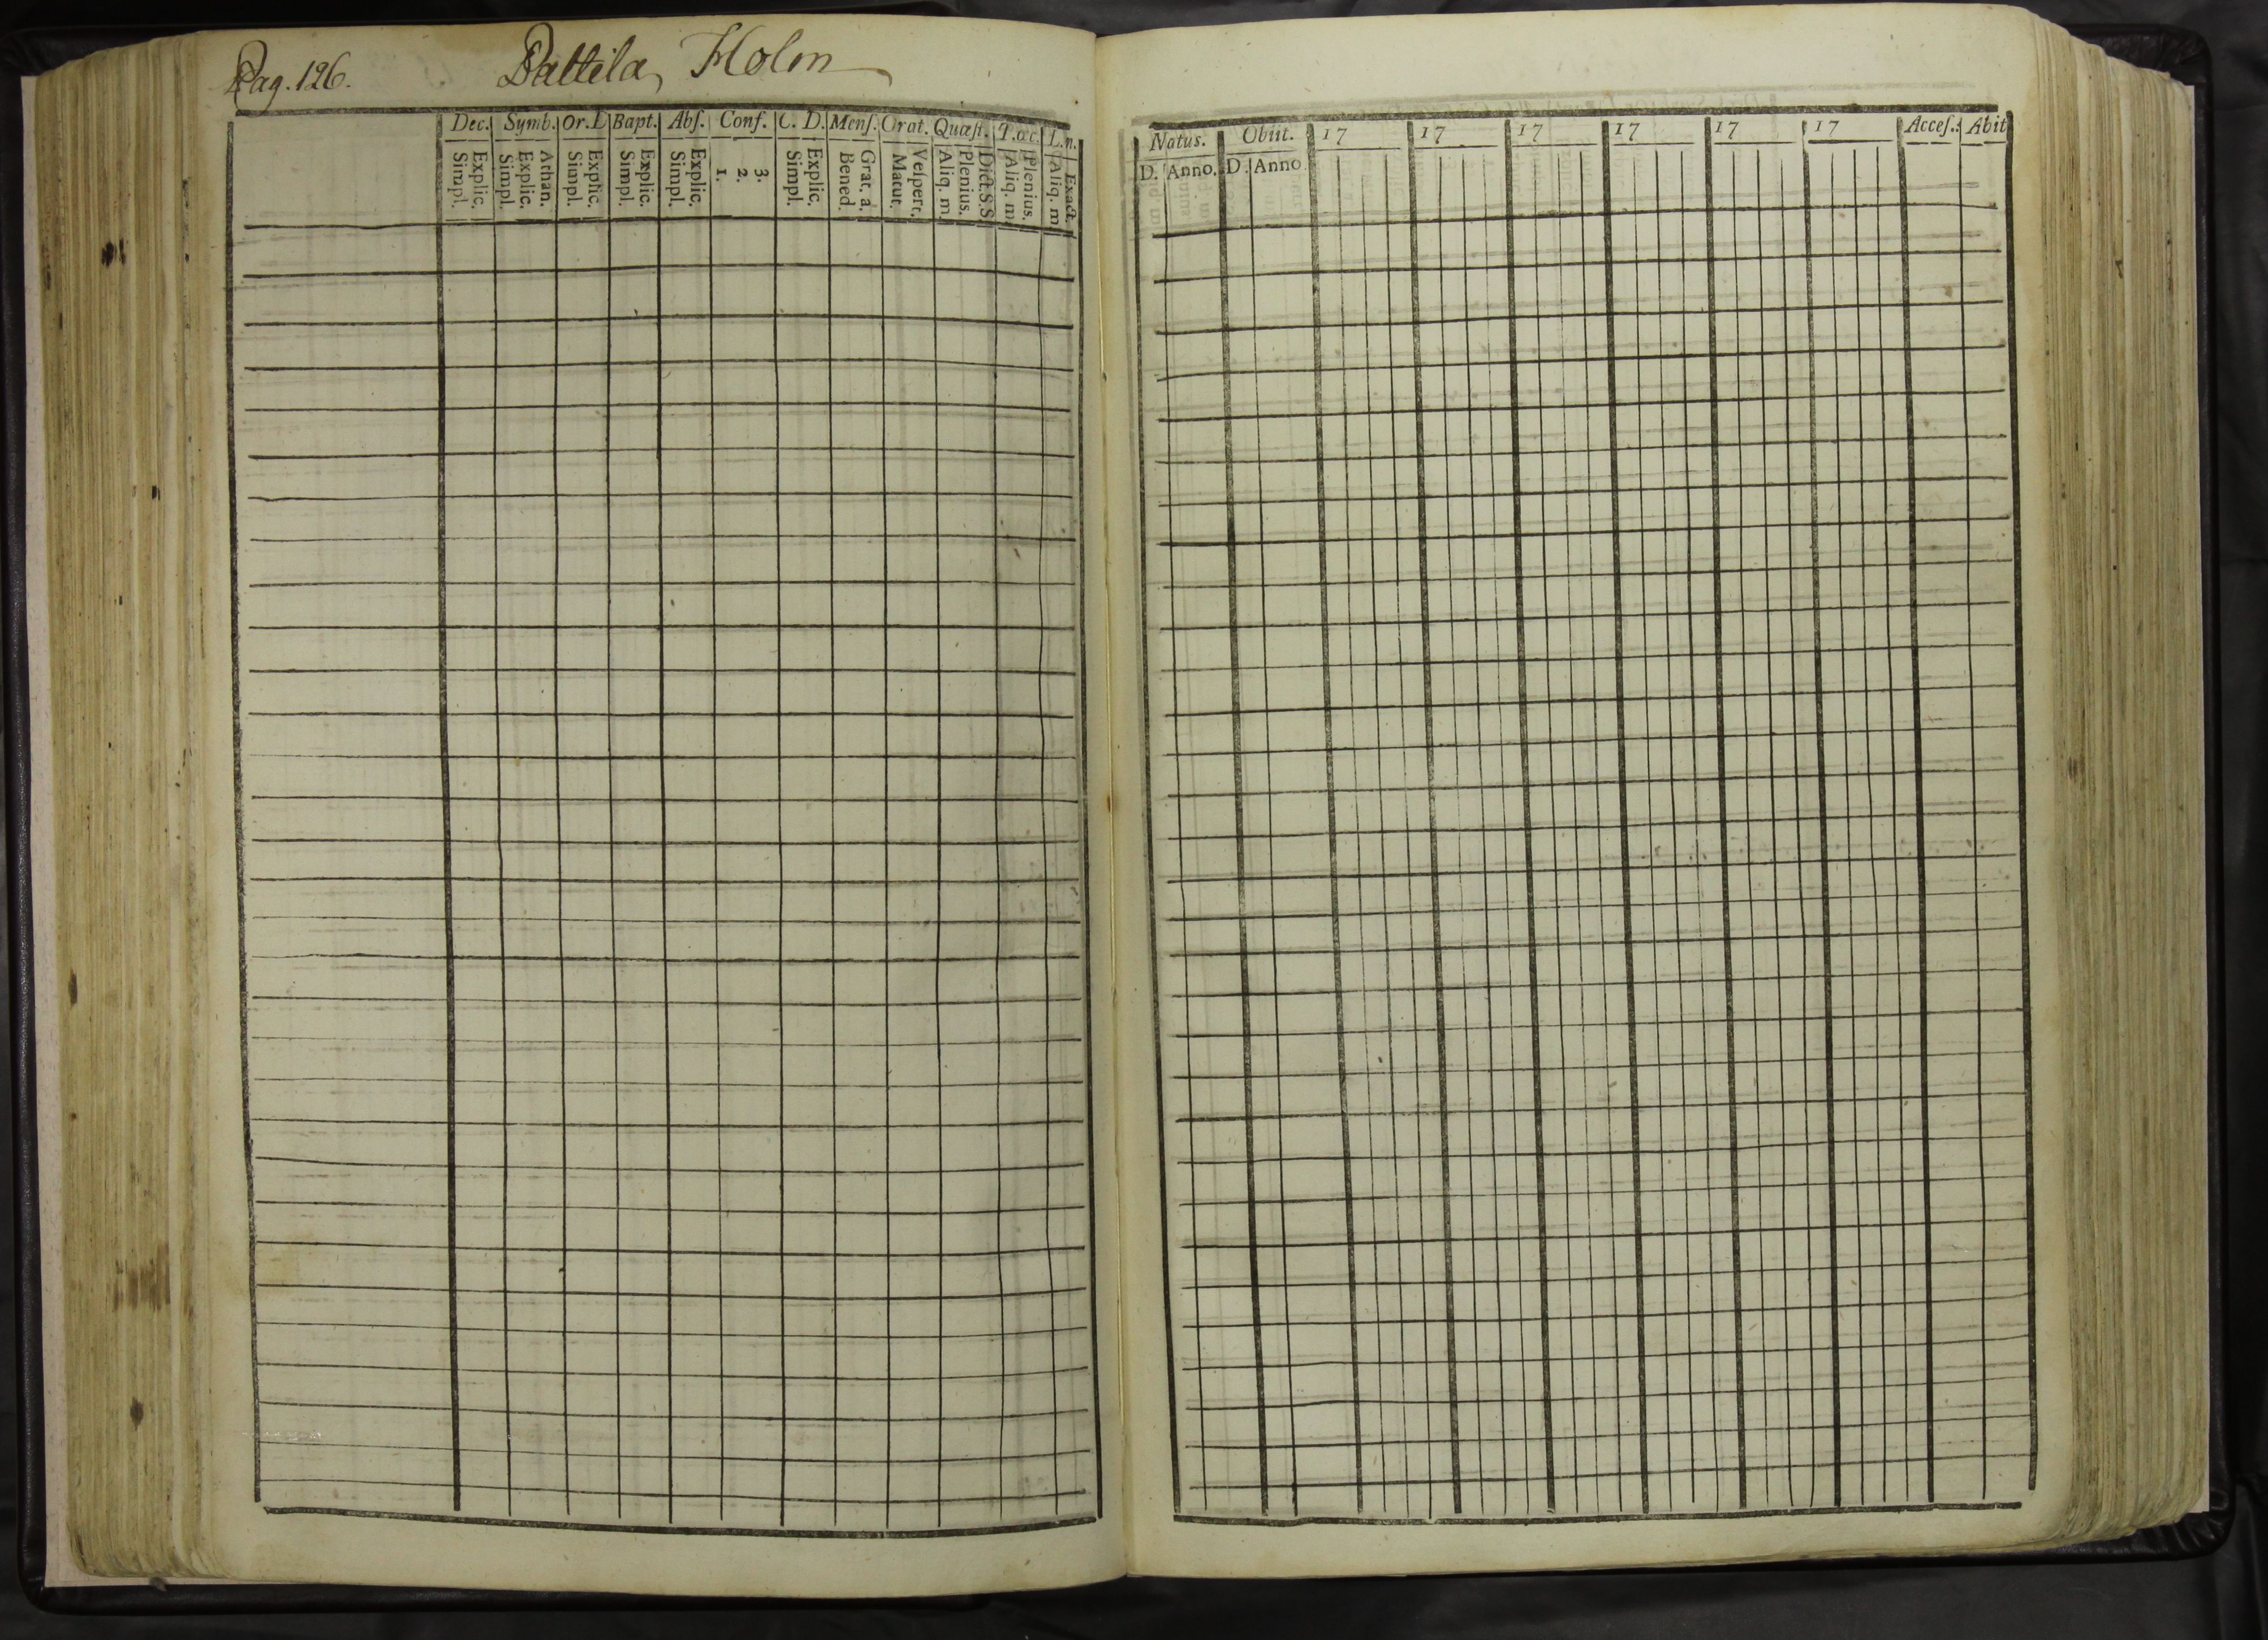 Pag. 126. Pattila, Holm
Dec. Symb. Or. D Bapt. Abſ. Conf. C. D. Menſ. Orat. Quæſt. T. œc. L. n.
Simpl. Explic. Simpl. Explic. Athan. Simpl. Explic. Simpl. Explic. Simpl. Explic. 1. 2. 3. Simpl. Explic. Bened. Grat. a. Matut. Veſpert. Aliq. m. Plenius. Dict. S.S. Aliq. m. Plenius. Aliq. m. Exact.
Natus. Obiit. 17 17 17 17 17 17 Acceſ.: Abit
D. Anno. D. Anno